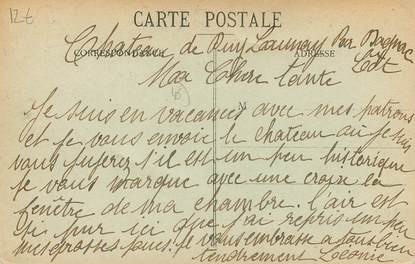 12 €
CARTE POSTALE
CORRESPONDANCE ADRESSE
Chateau de Puy Launay Par
Lot
Ma Chere tante
M
Je suis en vacances avec mes patrons
et je vous envoie le chateau ou je suis
vous jugerez s'il est un peu historique
Je vous marque avec une croix la
fenêtre de ma chambre. l'air est
si pur ici que j'ai repris un peu
mes grosses joues. Je vous embrasse a tous bien
tendrement Leonie